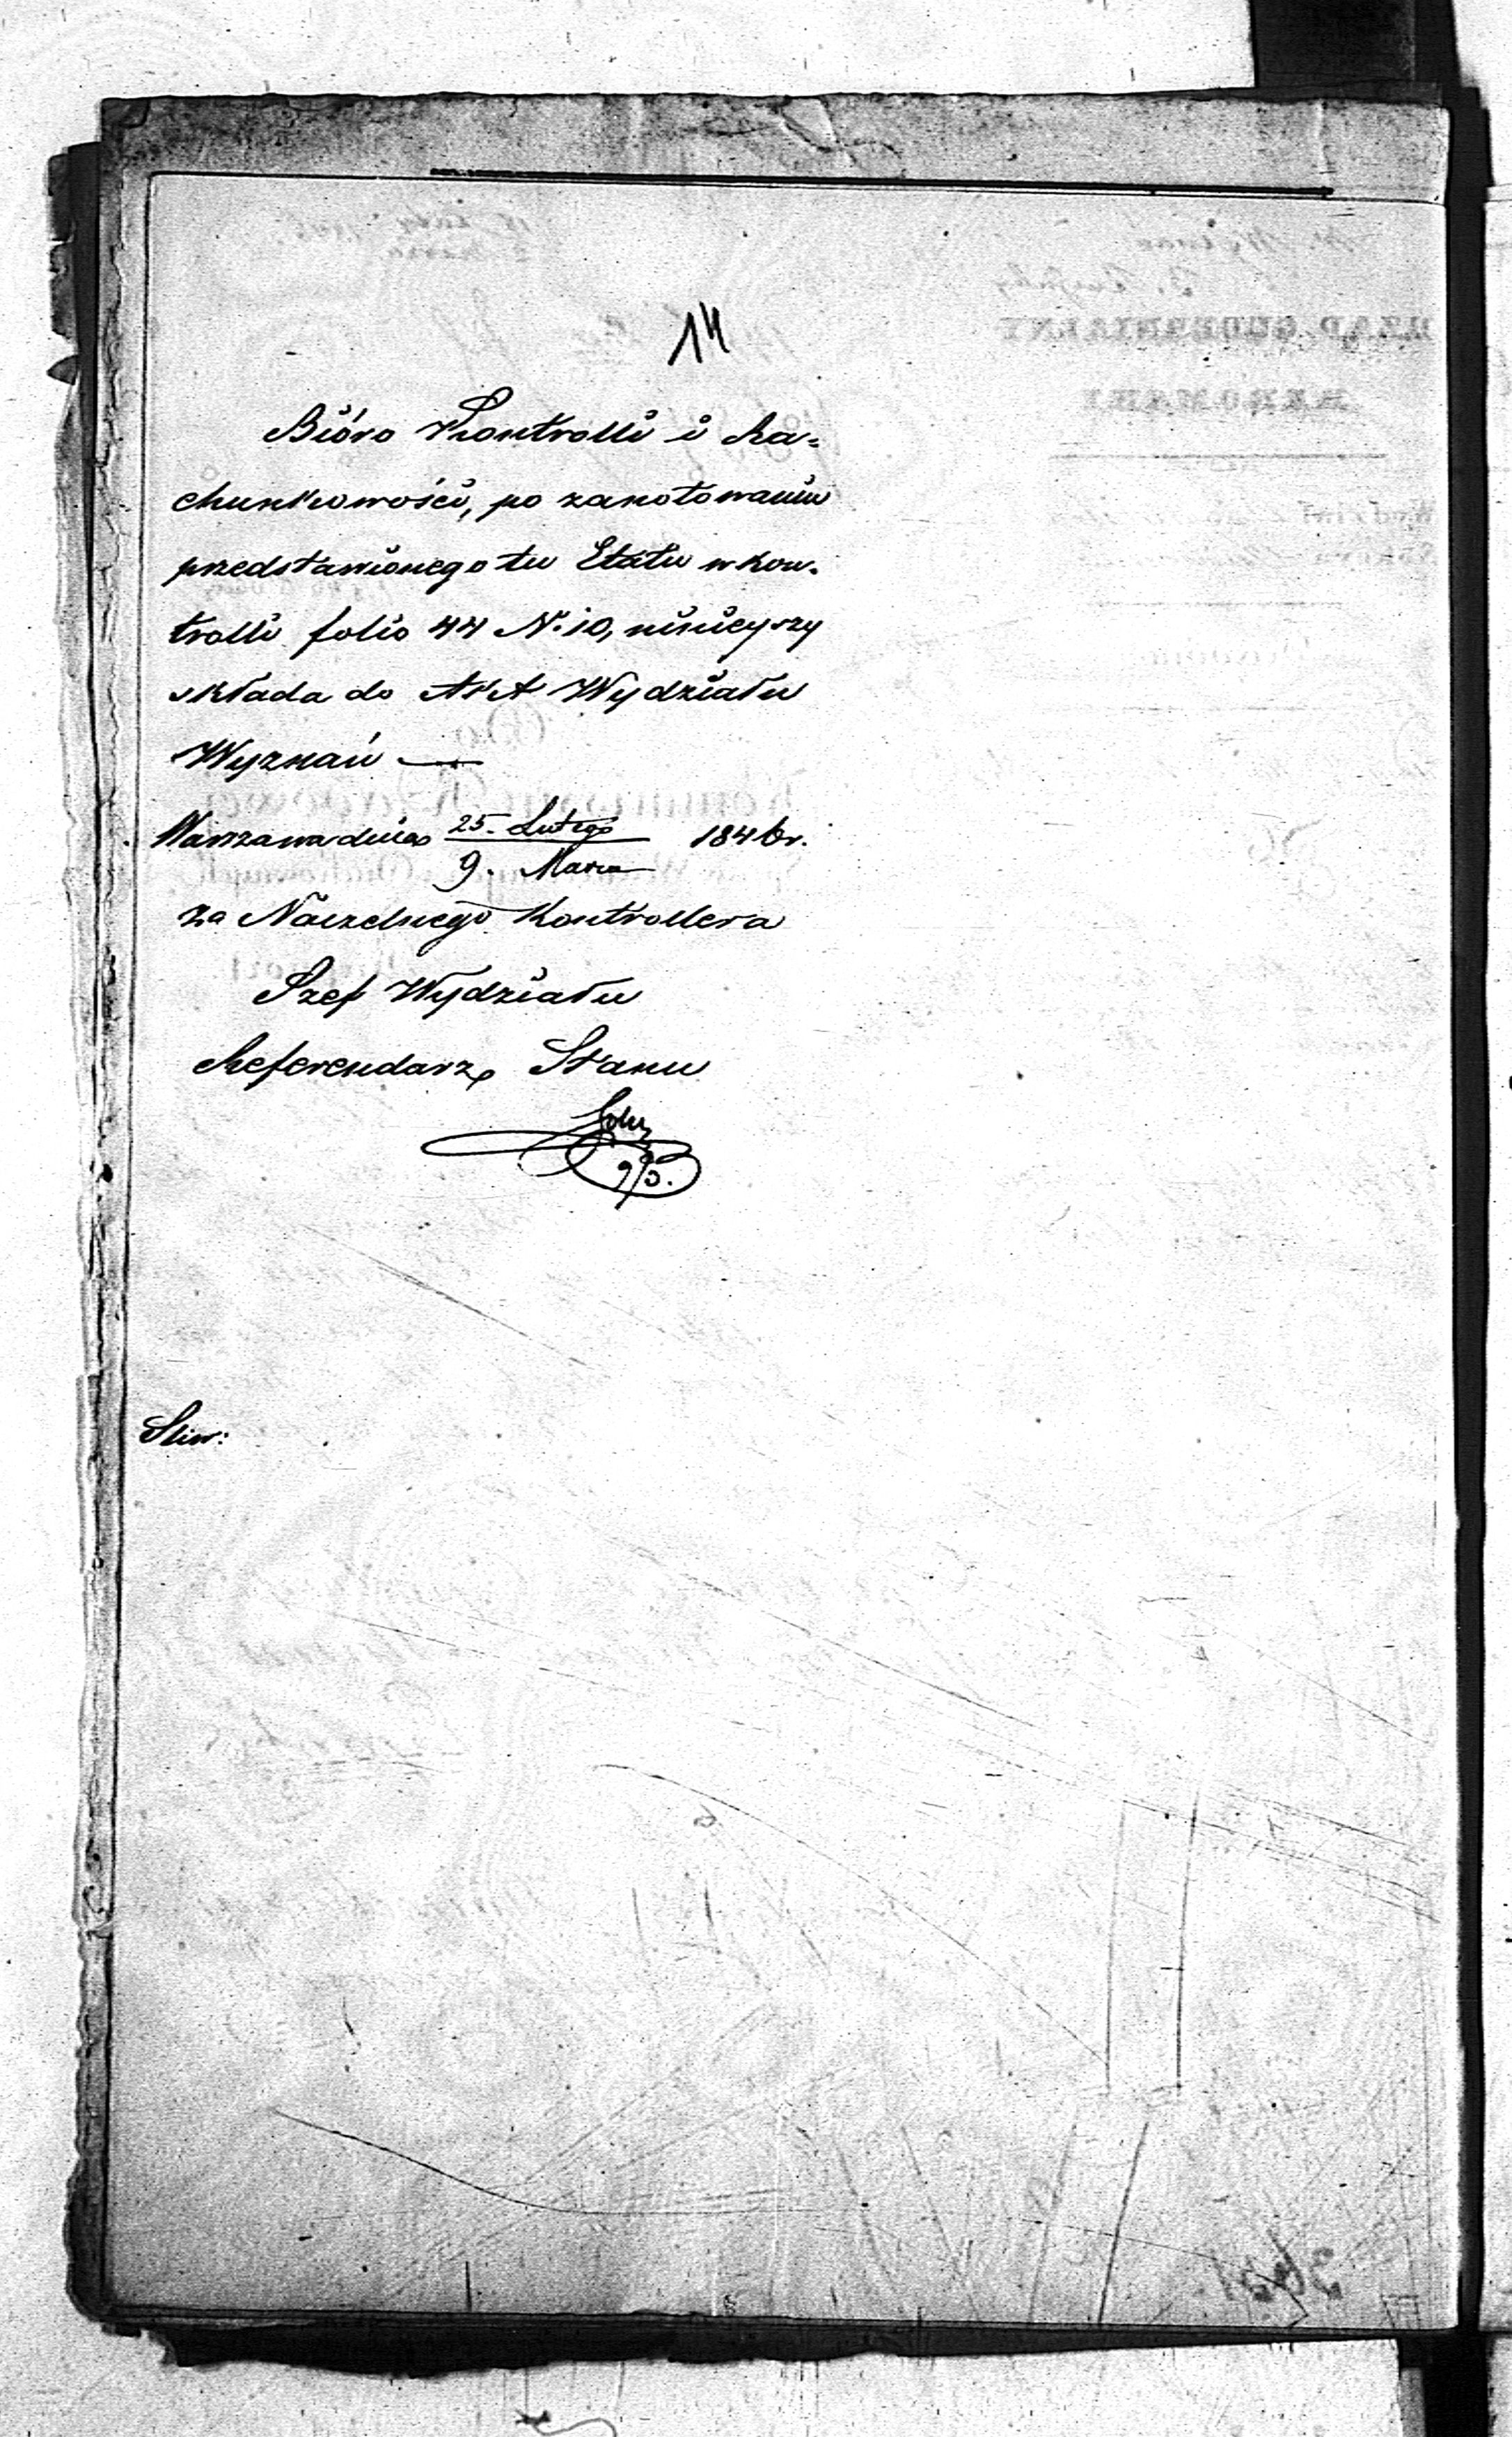 14
Bióro Kontrolli i Ra=
chunkowości, po zanotowaniu
przedstawionego tu Etatu w kon-
trolli folio 44 N. 10, niniejszy
składa do Akt Wydziału
Wyznań —
Warszawa dnia 25. Lutego / 9. Marca 1846 r.
za Naczelnego Kontrollera
Szef Wydziału
Referendarz Stanu
9/3.
Sliw: